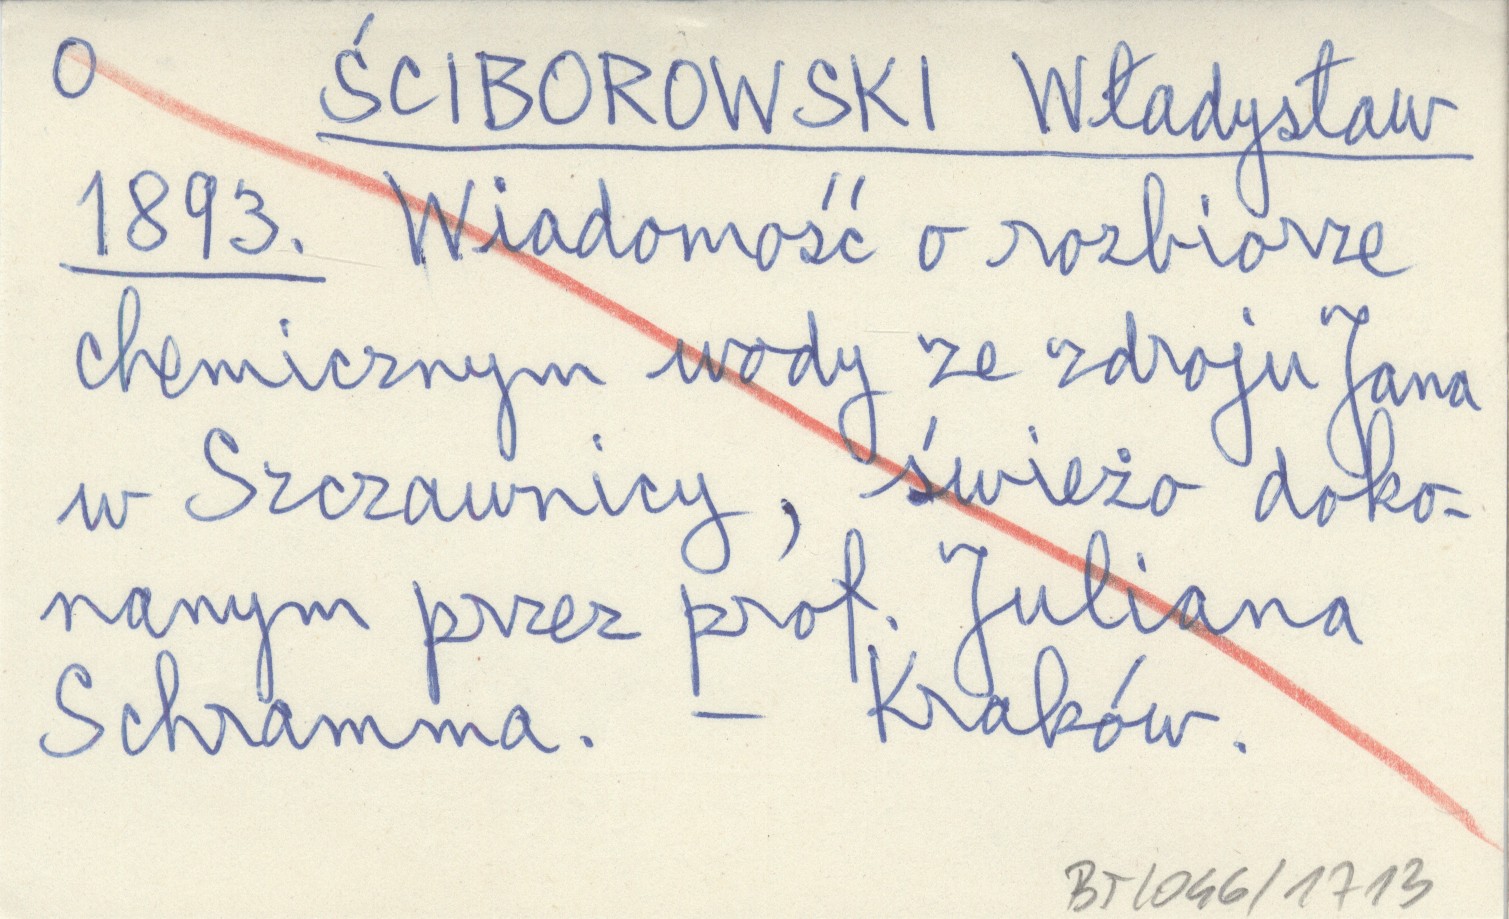 O ŚCIBOROWSKI Władysław
1893. Wiadomość o rozbiorze
chemicznym wody ze zdroju Jana
w Szczawnicy, świeżo doko-
nanym przez prof. Juliana
Schramma. – Kraków.
BT/046/1713